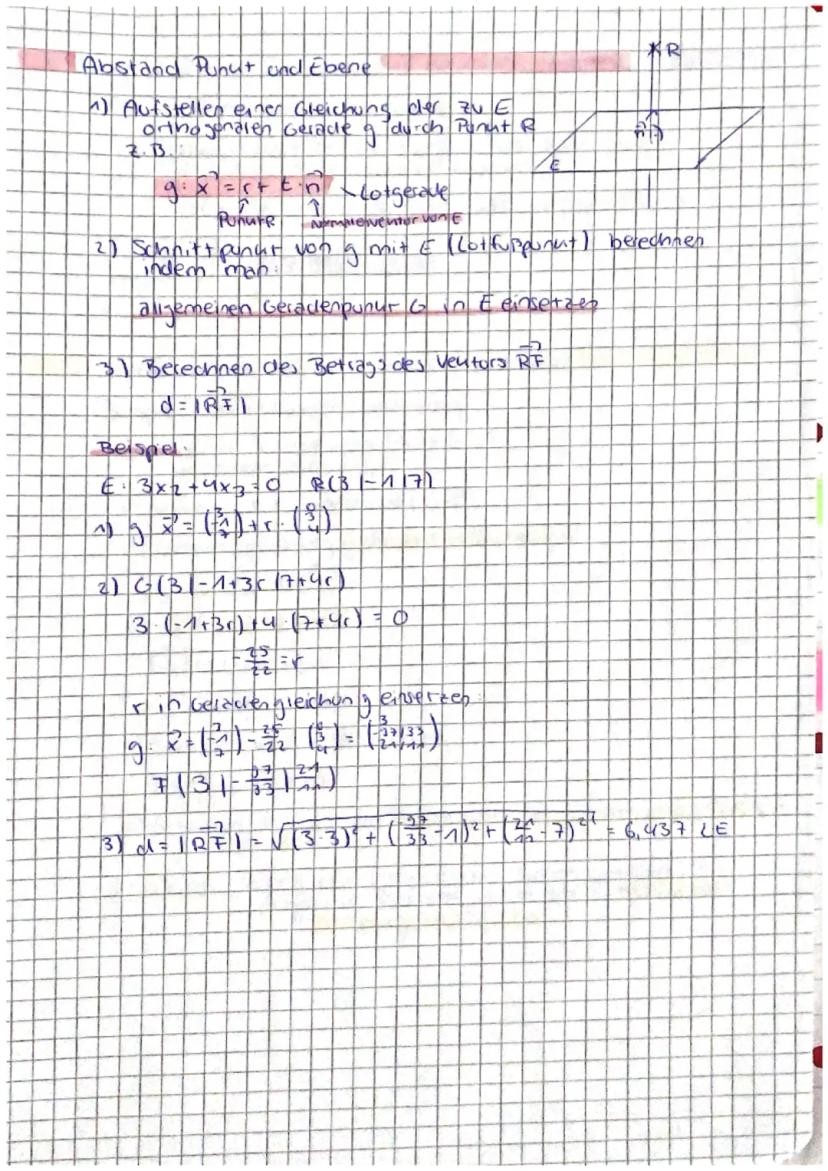 Abstand Punkt und Ebene
R
1) Aufstellen einer Gleichung der zu E
orthogonalen Gerade g durch Punkt R
z.B.
n
E
g: x = r + t · n Lotgerade
Punkt R Normalenvektor von E
2) Schnittpunkt von g mit E (Lotfußpunkt) berechnen
indem man:
allgemeinen Geradenpunkt G in E einsetzen
3) Berechnen des Betrags des Vektors RF
d = |RF|
Beispiel:
E: 3x2 + 4x3 = 0 R(3|-1|7)
1) g x = (3 -1 7) + r · (0 3 4)
2) G(3|-1+3r|7+4r)
3·(-1+3r)+4·(7+4r) = 0
-25/22 = r
r in Geradengleichung einsetzen:
g: x = (3 -1 7) - 25/22 (0 3 4) = (3 -97/33 21/11)
F(3|-97/33|21/11)
3) d = |RF| = √(3-3)² + (-97/33 -1)² + (21/11 -7)² = 6,437 LE